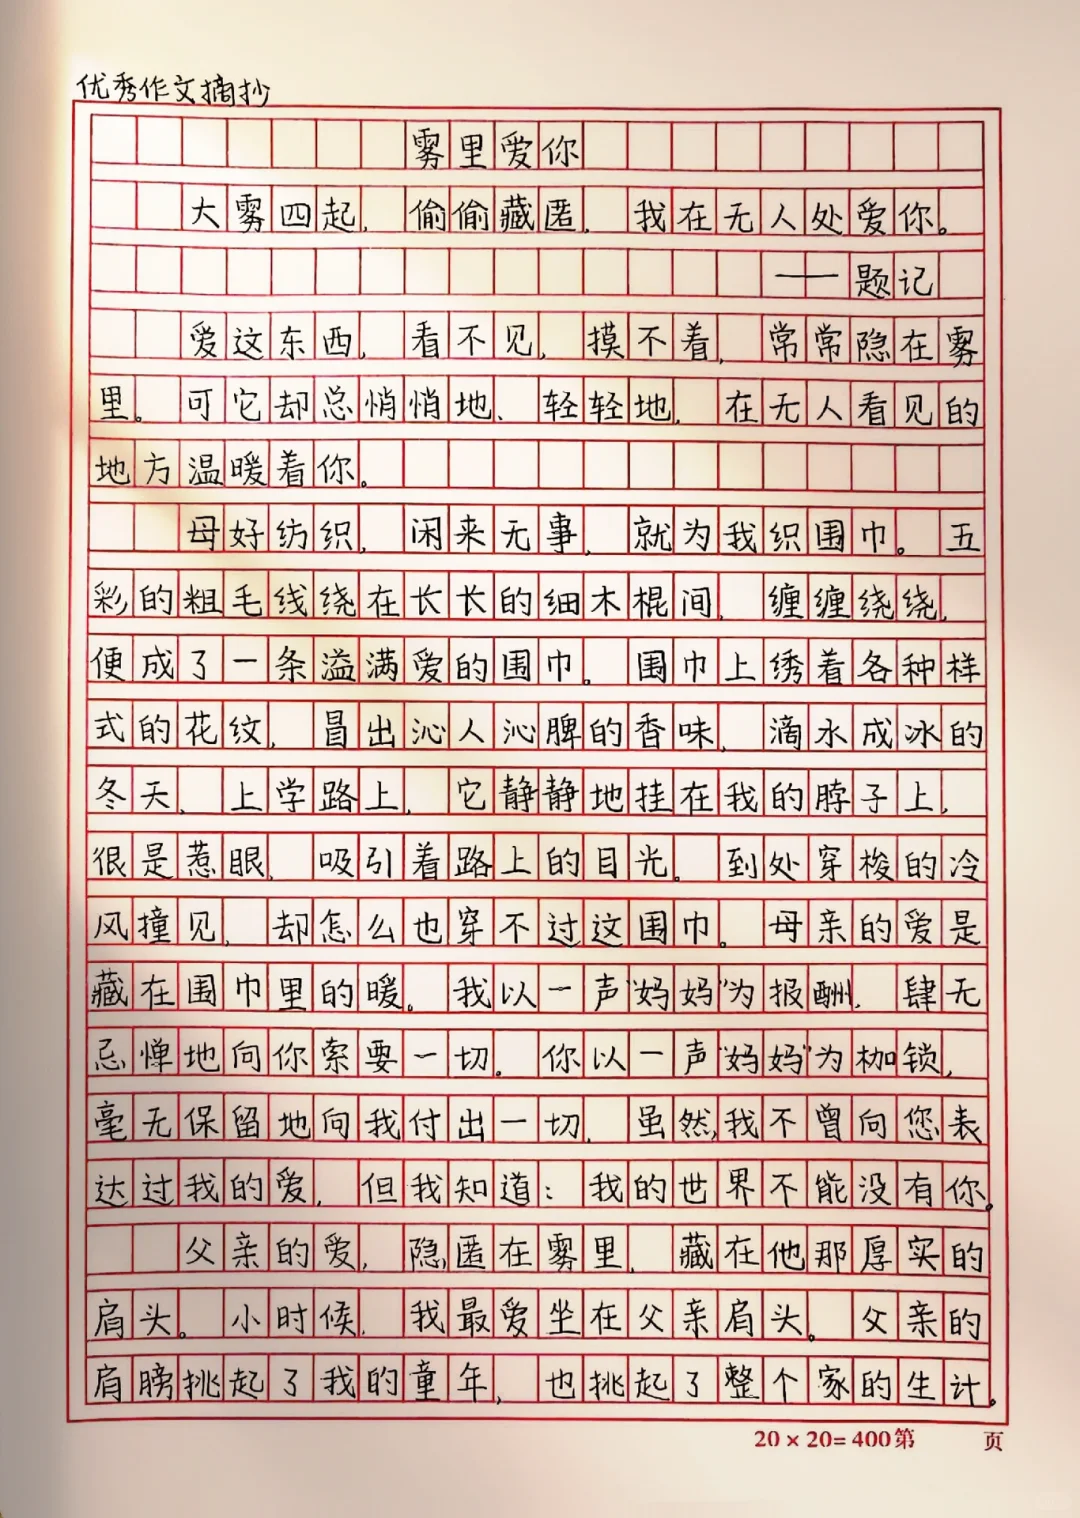 优秀作文摘抄
雾里爱你
大雾四起，偷偷藏匿，我在无人处爱你。
——题记
爱这东西，看不见，摸不着，常常隐在雾
里。可它却总悄悄地、轻轻地，在无人看见的
地方温暖着你。
母好纺织，闲来无事，就为我织围巾。五
彩的粗毛线绕在长长的细木棍间，缠缠绕绕，
便成了一条溢满爱的围巾。围巾上绣着各种样
式的花纹，冒出沁人沁脾的香味，滴水成冰的
冬天，上学路上，它静静地挂在我的脖子上，
很是惹眼，吸引着路上的目光。到处穿梭的冷
风撞见，却怎么也穿不过这围巾。母亲的爱是
藏在围巾里的暖。我以一声“妈妈”为报酬，肆无
忌惮地向你索要一切。你以一声“妈妈”为枷锁，
毫无保留地向我付出一切，虽然，我不曾向您表
达过我的爱，但我知道：我的世界不能没有你。
父亲的爱，隐匿在雾里，藏在他那厚实的
肩头。小时候，我最爱坐在父亲肩头。父亲的
肩膀挑起了我的童年，也挑起了整个家的生计。
20×20=400第 页